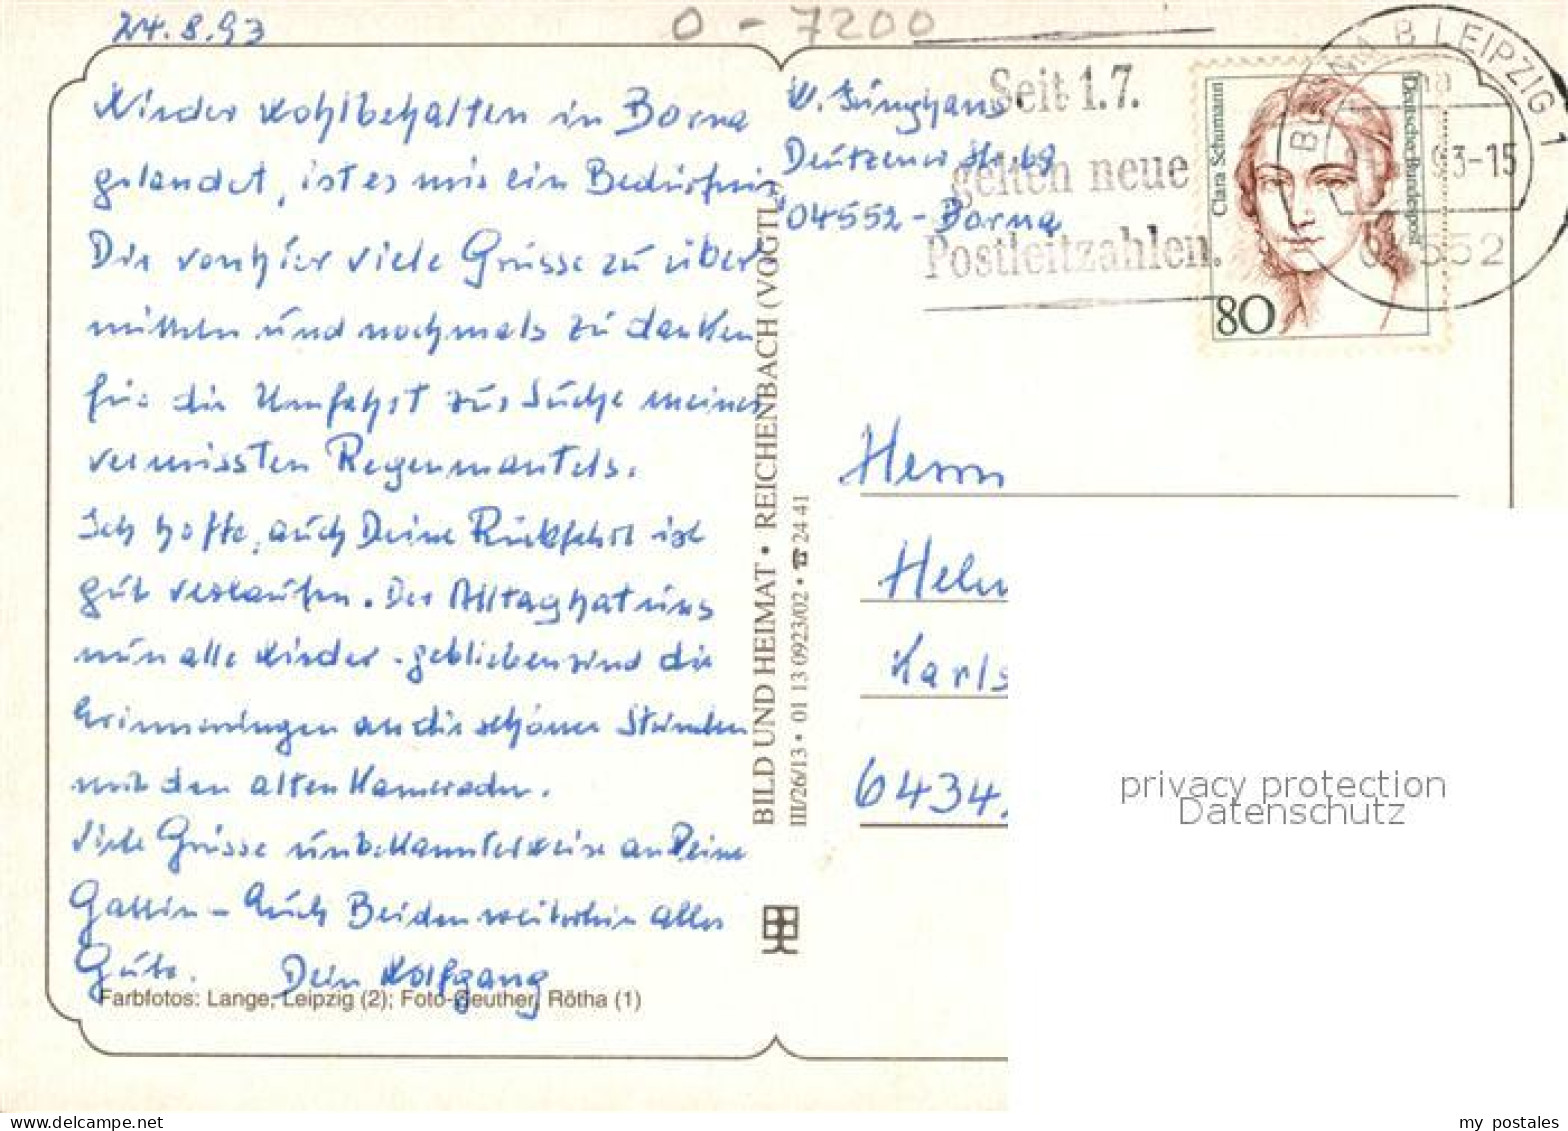 24.8.93
0 - 7200
Wieder wohlbehalten in Borna
gelandet, ist es mir ein Bedürfnis
Dir von hier viele Grüsse zu über
mitteln und nochmals zu danken
für die Umfahrt zur Suche meines
vermissten Regenmantels.
Ich hoffe, auch Deine Rückfahrt ist
gut verlaufen. Der Alltag hat uns
nun alle wieder - geblieben sind die
Erinnerungen an die schönen Stunden
mit den alten Kameraden.
Viele Grüsse unbekannterweise an Deine
Gattin - Euch Beiden weiterhin alles
Gute. Dein Wolfgang
Farbfotos: Lange, Leipzig (2); Foto-Geuther, Rötha (1)
BILD UND HEIMAT • REICHENBACH (VOGTL.)
III/26/13 • 01 13 0923/02 • ☎ 24 41
W. Junghans
Deutzener Str. 69
04552 - Borna
Seit 1.7.
gelten neue
Postleitzahlen.
Clara Schumann
Deutsche Bundespost
80
BORNA B LEIPZIG 1
93-15
04552
Herrn
Helm
Karls
6434
privacy protection
Datenschutz
my postales